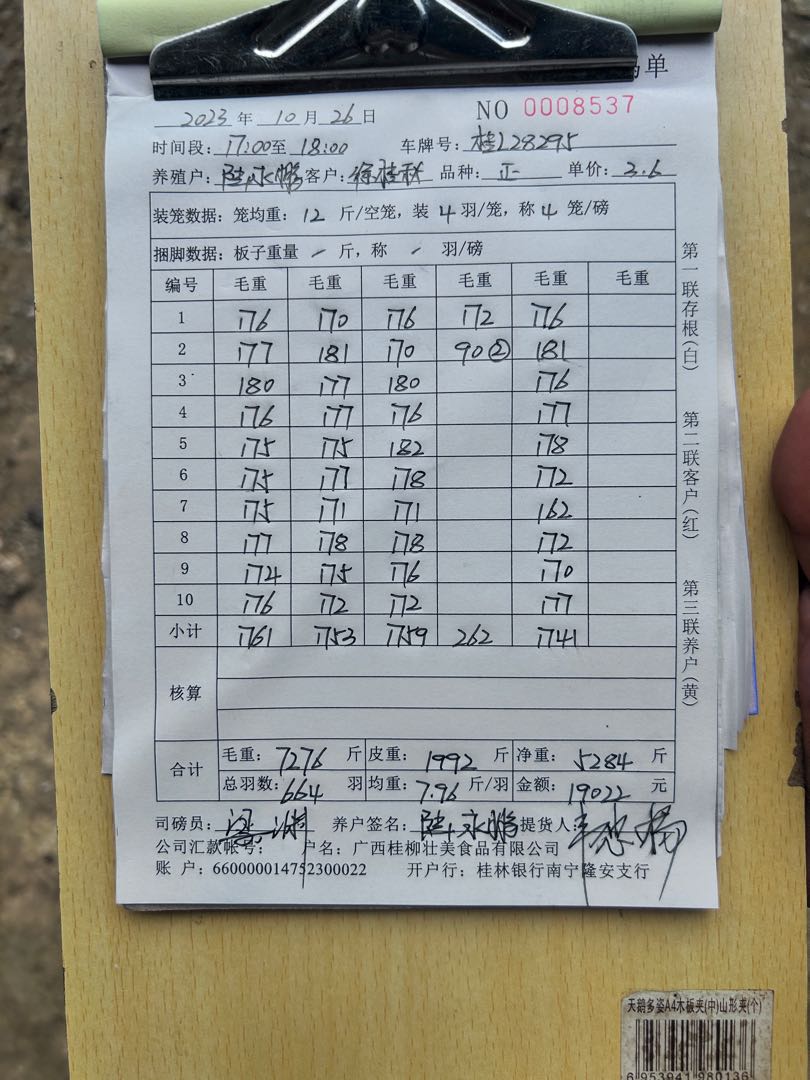 单
2023 年 10 月 26 日 NO 0008537
时间段: 17:00至 18:00 车牌号: 桂L28295
养殖户: 陆永鹏 客户: 徐桂秋 品种: 正 单价: 3.6
装笼数据: 笼均重: 12 斤/空笼, 装 4 羽/笼, 称 4 笼/磅
捆脚数据: 板子重量 / 斤, 称 / 羽/磅
编号 毛重 毛重 毛重 毛重 毛重 毛重
1 176 170 176 172 176
2 177 181 170 90② 181
3 180 177 180 176
4 176 177 176 177
5 175 175 182 178
6 175 177 178 172
7 175 171 171 162
8 177 178 178 172
9 174 175 176 170
10 176 172 172 177
小计 1761 1753 1759 262 1741
核算
合计 毛重: 7276 斤 皮重: 1992 斤 净重: 5284 斤
总羽数: 664 羽 均重: 7.96 斤/羽 金额: 19022 元
司磅员: 养户签名: 陆永鹏 提货人:
公司汇款帐号: 户名: 广西桂柳壮美食品有限公司
账 户: 660000014752300022 开户行: 桂林银行南宁隆安支行
第一联存根(白)
第二联客户(红)
第三联养户(黄)
天鹅多姿A4木板夹(中)山形夹(个)
6 953941 980136